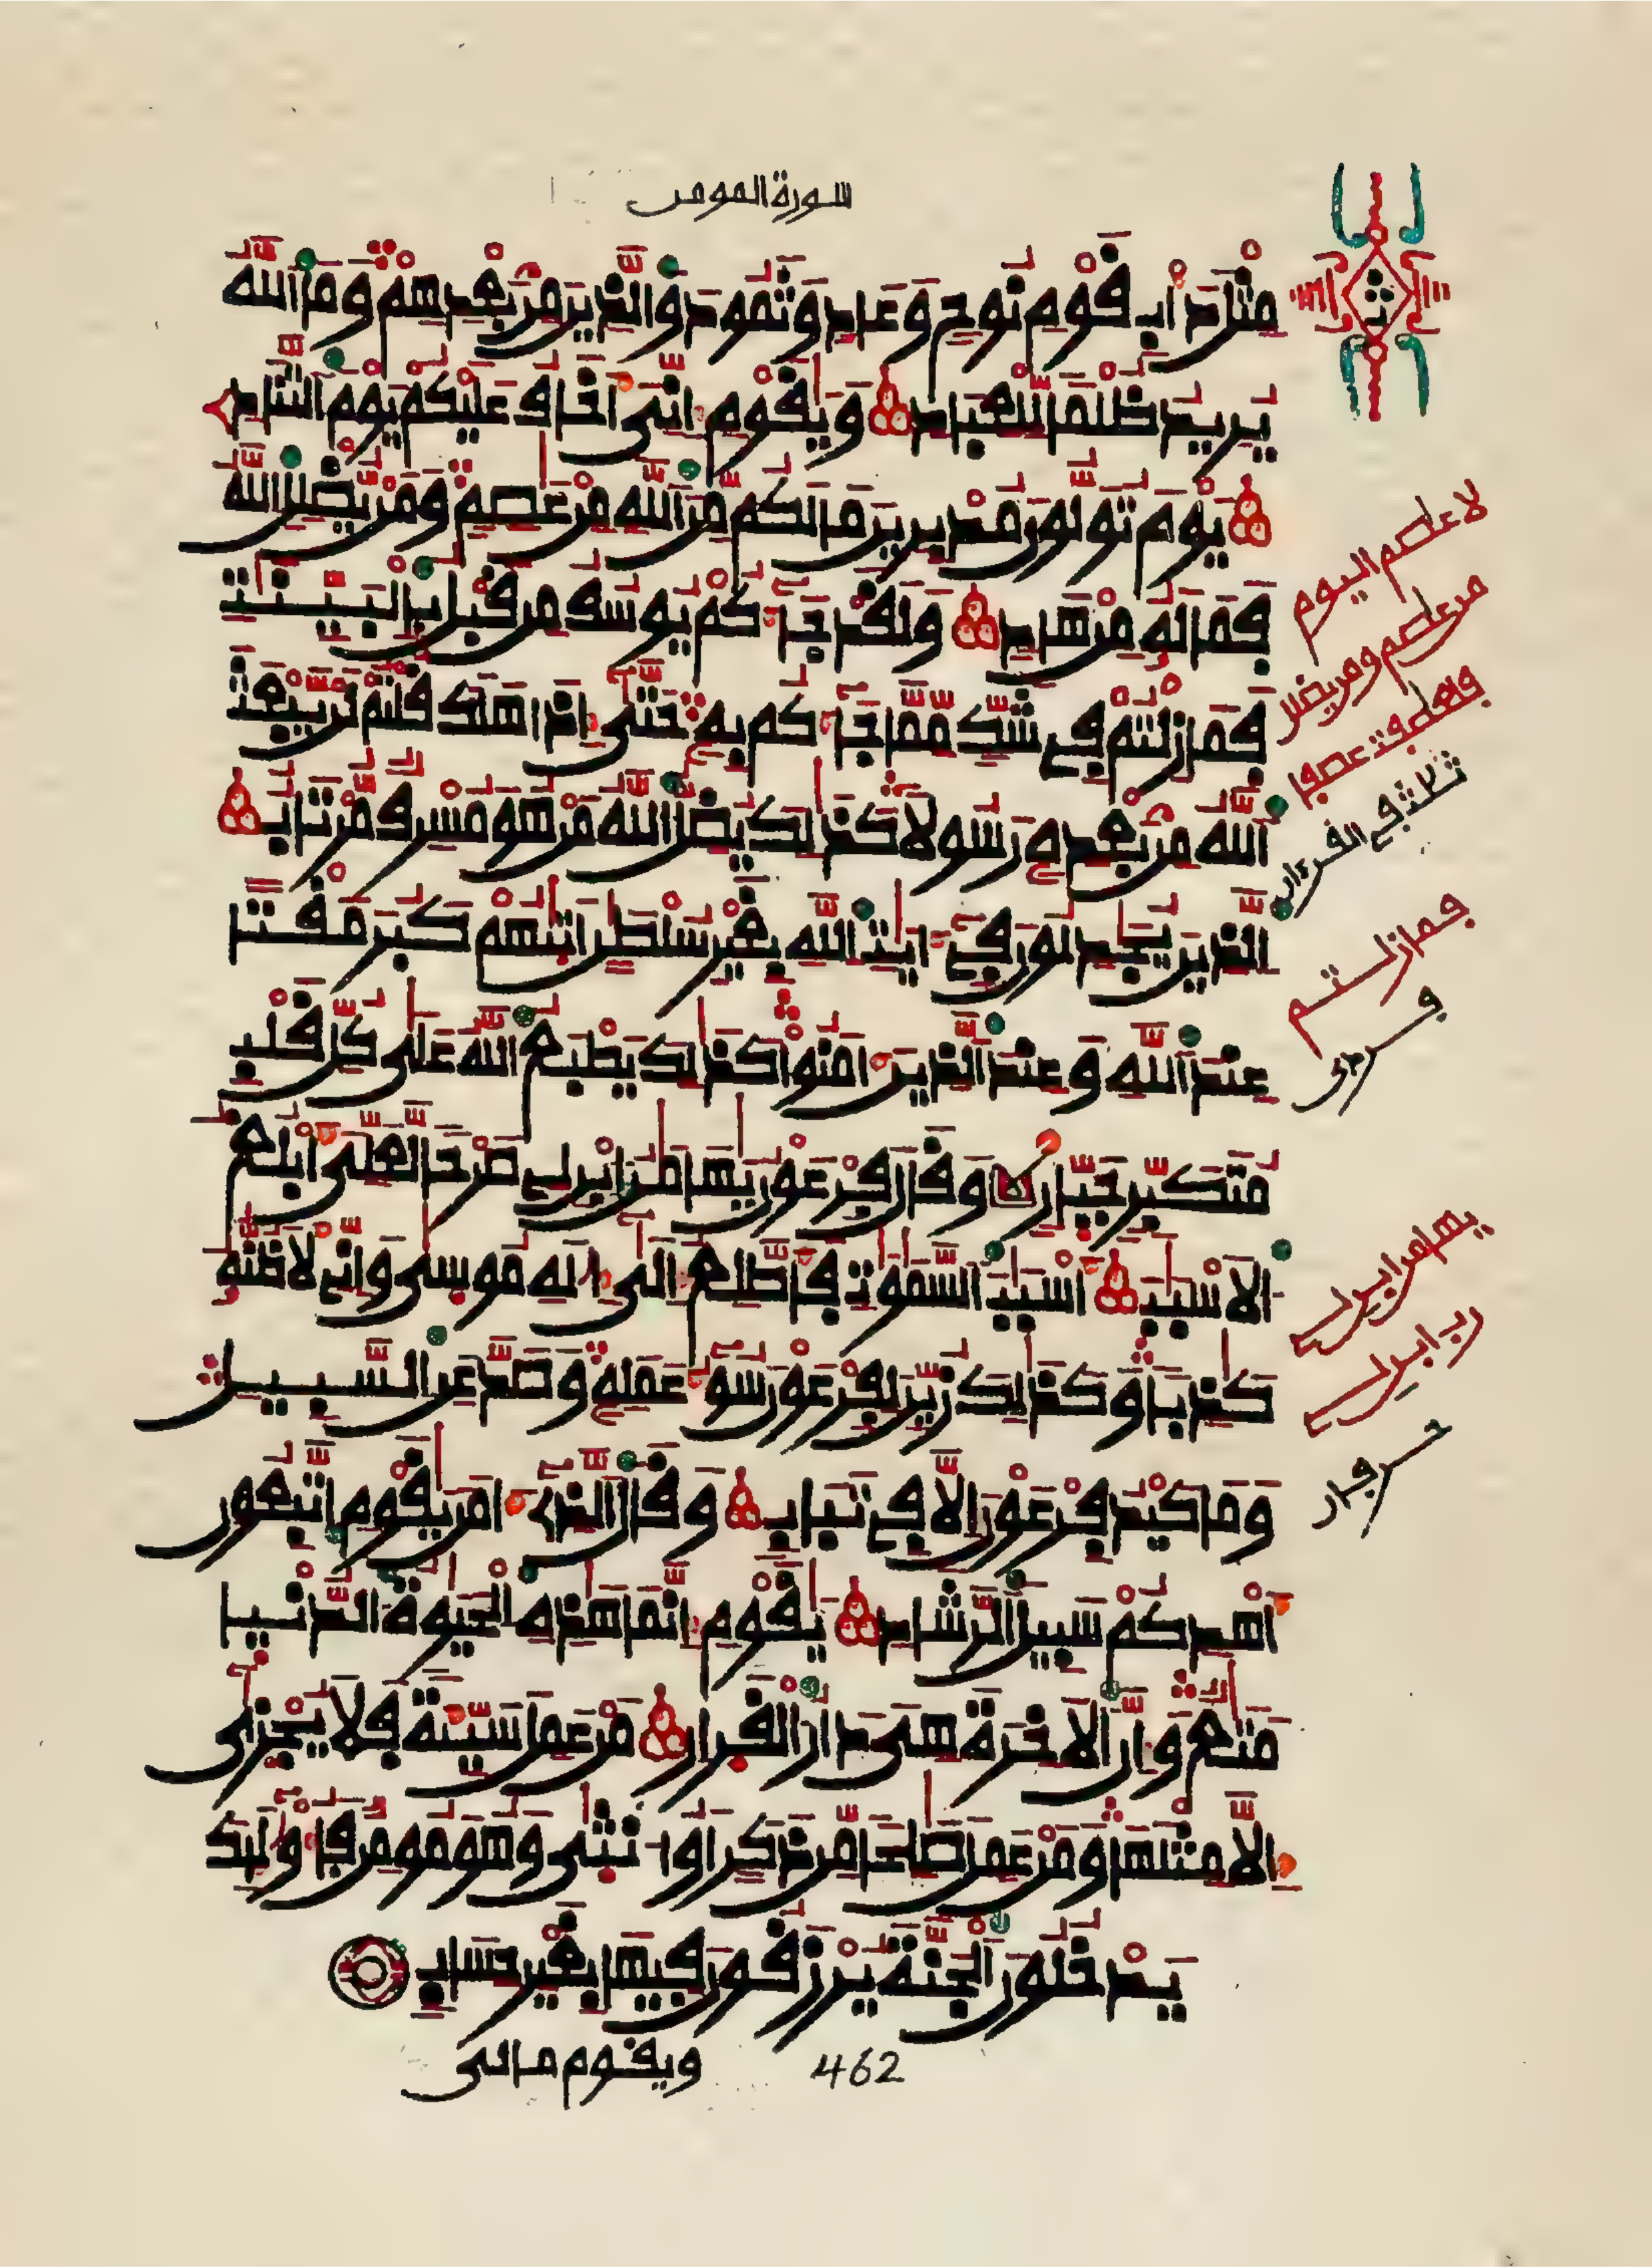 سورة المومن
مثل دأب قوم نوح وعاد وثمود والذين من بعدهم وما الله
يريد ظلما للعباد ويقوم إني أخاف عليكم يوم التناد
يوم تولون مدبرين ما لكم من الله من عاصم ومن يضلل الله
فما له من هاد ولقد جاءكم يوسف من قبل بالبينت
فما زلتم في شك مما جاءكم به حتى إذا هلك قلتم لن يبعث
الله من بعده رسولا كذلك يضل الله من هو مسرف مرتاب
الذين يجدلون في ءايت الله بغير سلطن أتيهم كبر مقتا
عند الله وعند الذين ءامنوا كذلك يطبع الله على كل قلب
متكبر جبار وقال فرعون يهامن ابن لي صرحا لعلي أبلغ
الاسبب أسبب السموت فأطلع إلى إله موسى وإني لأظنه
كذبا وكذلك زين لفرعون سوء عمله وصد عن السبيل
وما كيد فرعون إلا في تباب وقال الذي ءامن يقوم اتبعون
أهدكم سبيل الرشاد يقوم إنما هذه الحيوة الدنيا
متع وإن الاخرة هي دار القرار من عمل سيئة فلا يجزى
إلا مثلها ومن عمل صلحا من ذكر او انثى وهو مومن فأولئك
يدخلون الجنة يرزقون فيها بغير حساب
ويقوم ما لي
462
لا عاصم اليوم
من عاصم ومن يضلل
ثلاثة في القرءان
فما زلتم
يهامن ابن لي
رب ابن لي